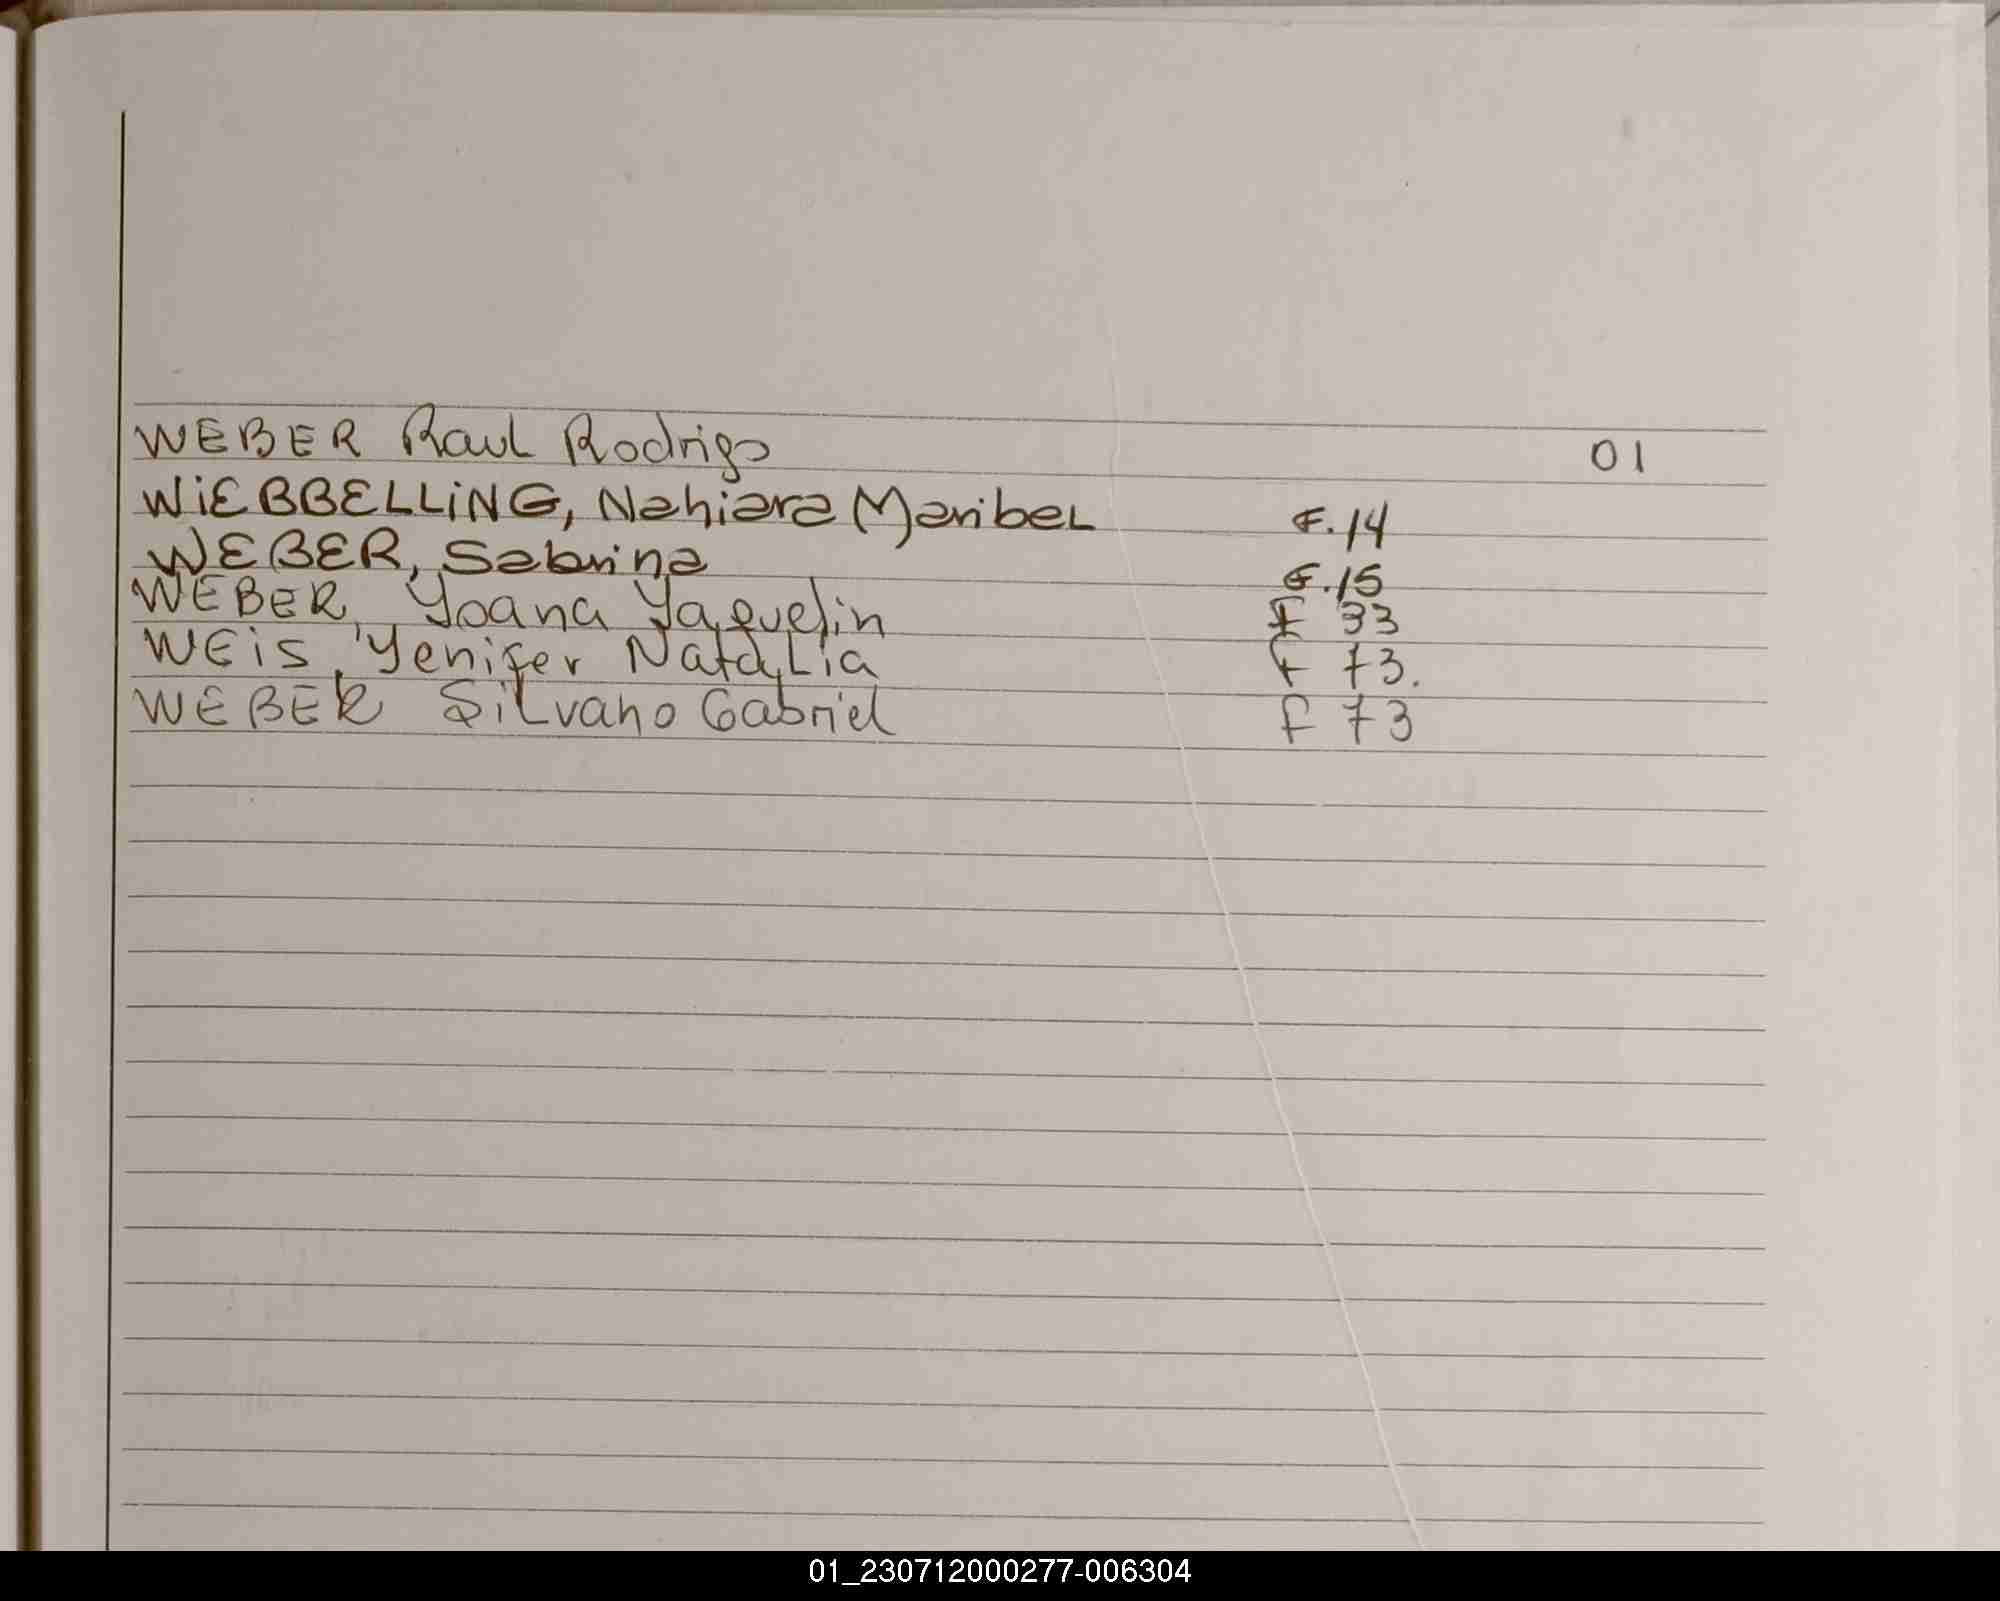 WEBER Raul Rodrigo 01
WiEBBELLiNG, Nahiara Maribel F. 14
WEBER, Sabrina F. 15
WEBER, Yoana Yaquelin F 33
WEiS, Yenifer NataLia F 73.
WEBER SiLvano Gabriel F 73
01_230712000277-006304